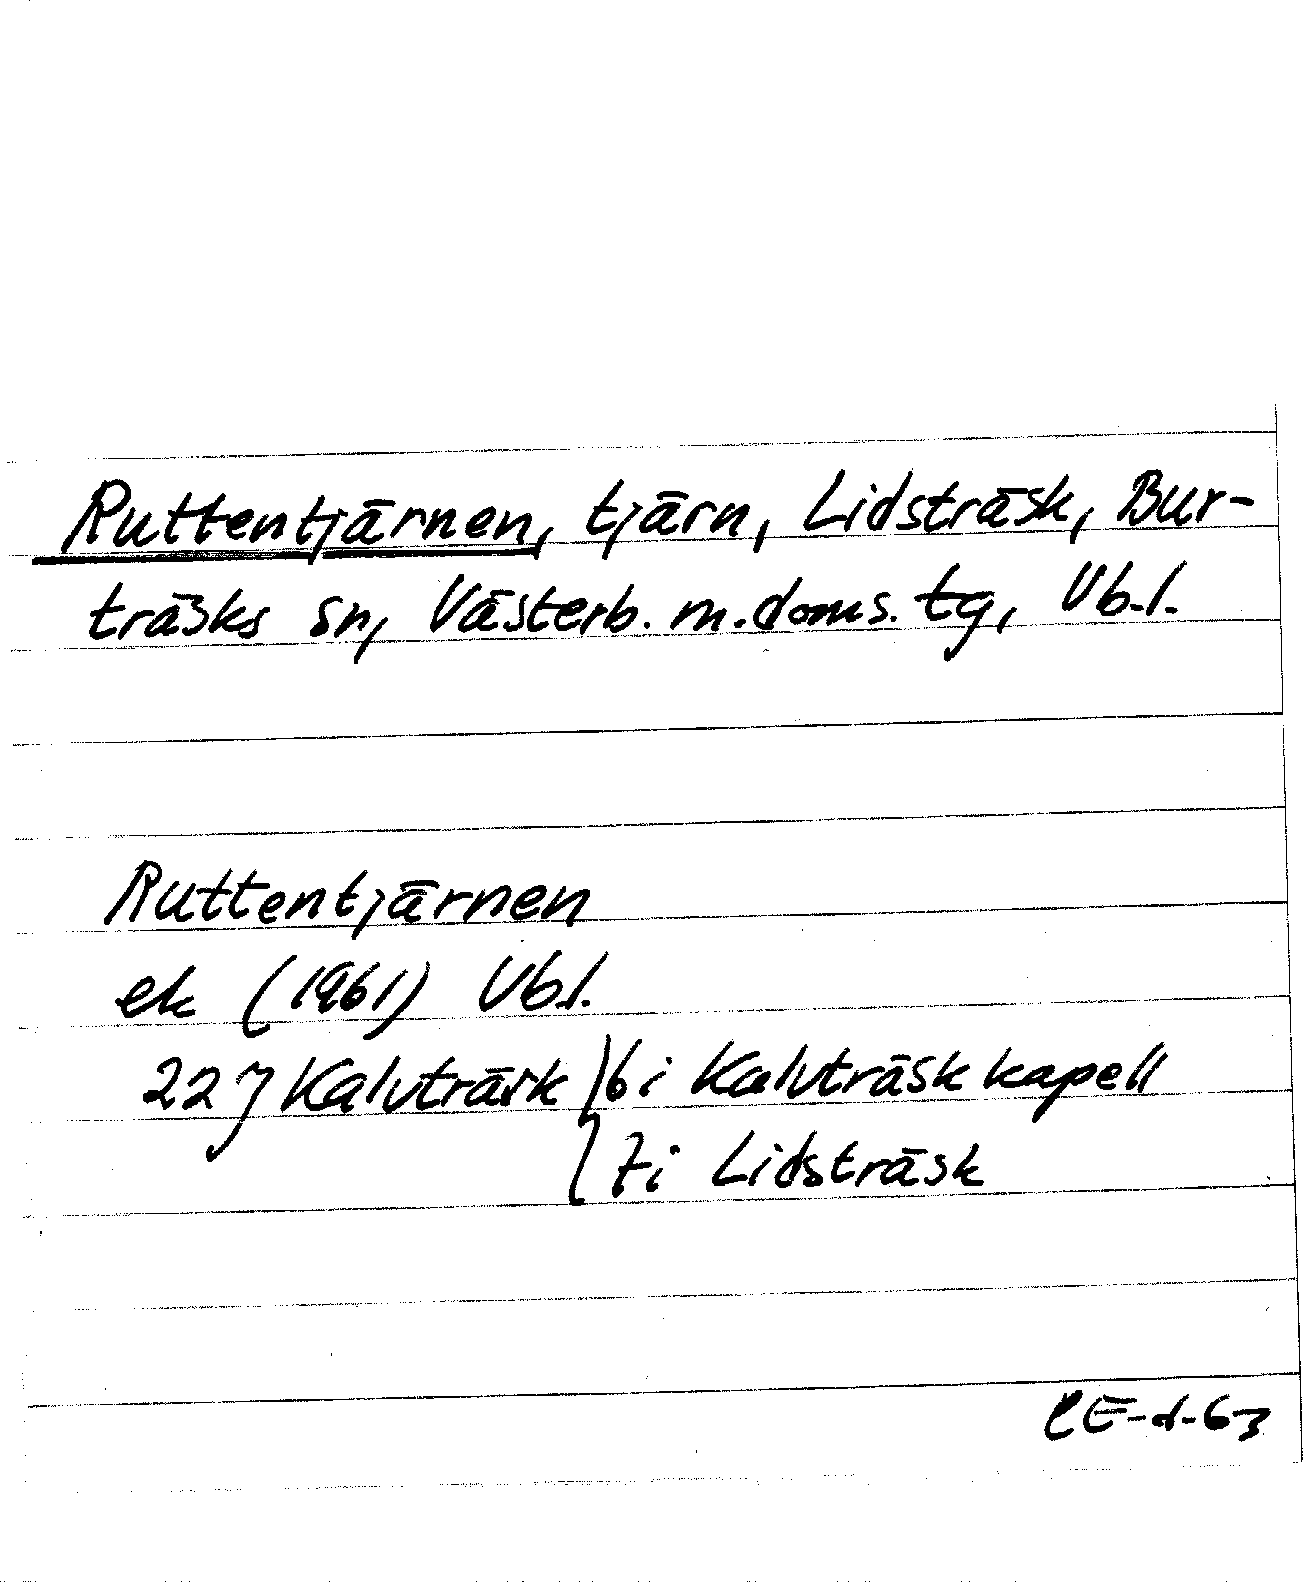 Ruttentjärnen, tjärn, Lidsträsk, Bur-
träsks sn, Västerb. m. doms. tg, Vb.l.
Ruttentjärnen
ek (1961) Vb.l.
22 J Kalvträsk } 6i Kalvträsk kapell
7i Lidsträsk